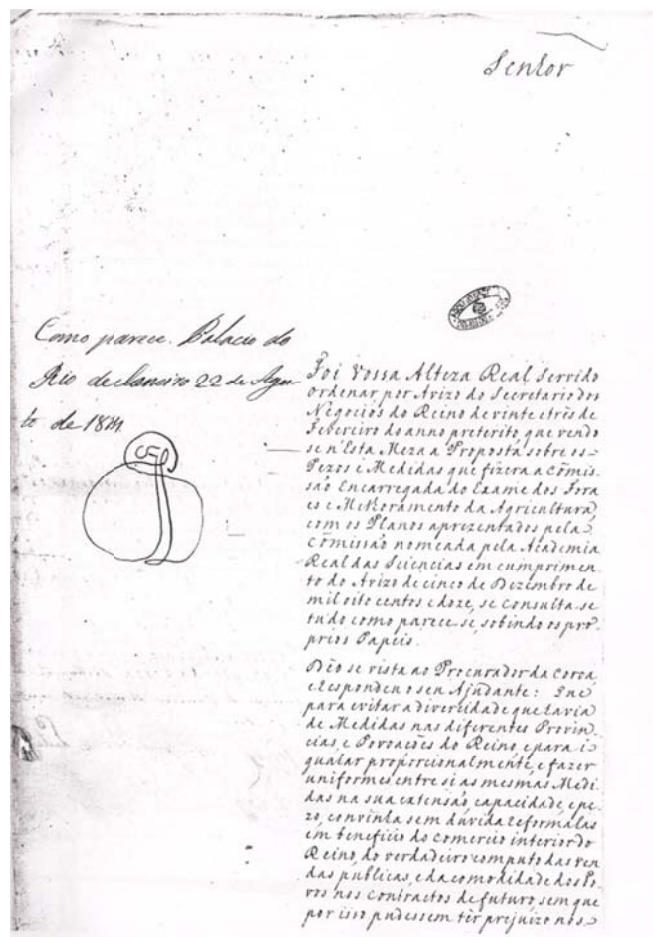 Senhor
Como parece. Palacio do
Rio de Janeiro 22 de Agos
to de 1814
Foi Vossa Alteza Real Servido
Ordenar por Avizo do Secretario dos
Negocios do Reino de vinte e três de
Fevereiro do anno preterito que vendo
se n'Esta Meza a Proposta sobre os
Pezos e Medidas que fizera a Cõmis-
são Encarregada do Exame dos Fora
es e Melhoramento da Agricultura,
com os Planos aprezentados pela
Cõmissão nomeada pela Academia
Real das Sciencias em cumprimen
to do Avizo de cinco de Dezembro de
mil oito centos e doze, se Consulta-se
tudo como parece-se, sobindo os pro
prios Papeis.
Dêo se vista ao Procurador da Coroa
e Respondeu o seu Ajudante: Que
para evitar a diversidade que havia
de Medidas nas diferentes Provin
cias, e Povoações do Reino, e para i
gualar proporcionalmente, e fazer
uniformes entre si as mesmas Medi
das na sua extensão, capacidade, e pe
zo, convinha sem dúvida reformalas
em beneficio do Comercio interior do
Reino, do verdadeiro computo das ren
das públicas, e da comodidade dos Po
vos nos Contractos de futuro, sem que
por isso pudessem têr prejuizo nos